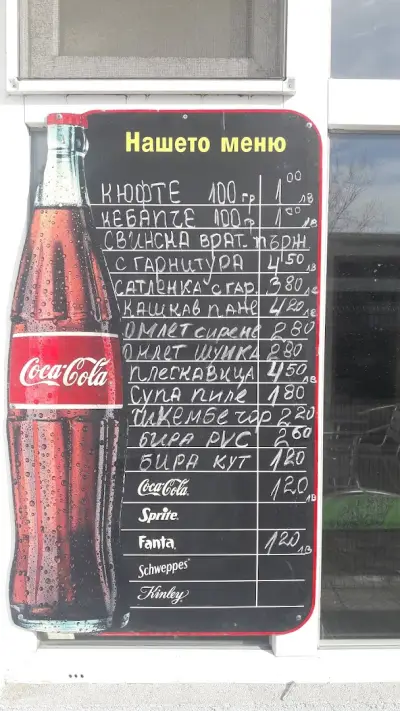 Нашето меню
КЮФТЕ 100 гр 1 00 лв
КЕБАПЧЕ 100 гр 1 00 лв
СВИНСКА ВРАТ. ПЪРЖ
С ГАРНИТУРА 4 50 лв
САТЛЕНКА С ГАР. 3 80 лв
КАШКАВ ПАНЕ 4 20 лв
ОМЛЕТ сирене 2 80
ОМЛЕТ ШУНКА 2 80
ПЛЕСКАВИЦА 4 50 лв
Супа ПИЛЕ 1 80
ШКЕМБЕ ЧОР 2 20
БИРА РУС 2 60
БИРА КУТ 1 20
Coca-Cola
Coca-Cola 1 20 лв
Sprite
Fanta 1 20 лв
Schweppes
Kinley